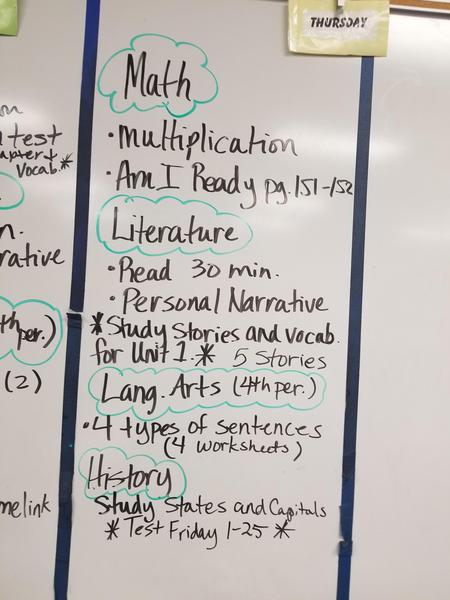 THURSDAY
Math
• multiplication
• Am I Ready pg. 151-152
Literature
• Read 30 min.
• Personal Narrative
* Study Stories and vocab.
for Unit 1. * 5 Stories
Lang. Arts (4th per.)
• 4 types of sentences
(4 worksheets)
History
Study States and Capitals
* Test Friday 1-25 *
test
Vocab. *
n.
rative
th per.)
(2)
melink